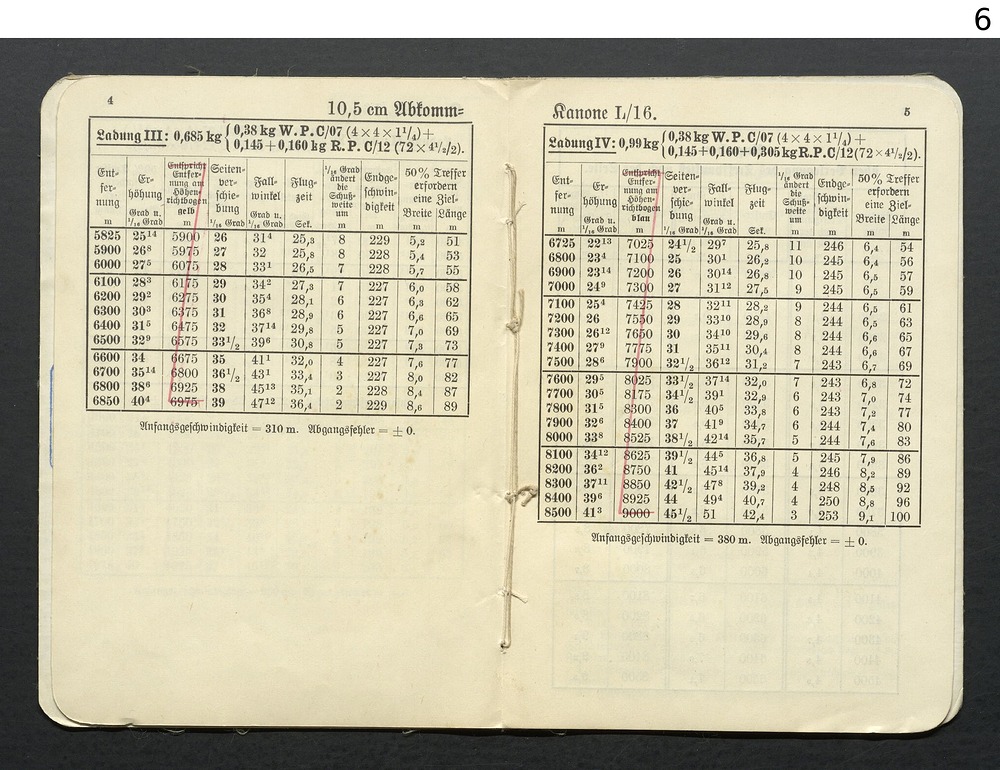 6
4
10,5 cm Abkomm=
Ladung III: 0,685 kg { 0,38 kg W. P. C/07 (4 × 4 × 1¹/₄) +
0,145 + 0,160 kg R. P. C/12 (72 × 4¹/₂/₂).
Ent-fer-nung m | Er-höhung Grad u. ¹/₁₆ Grad | Entspricht Entfer-nung am Höhen-richtbogen gelb m | Seiten-ver-schie-bung ¹/₁₆ Grad | Fall-winkel Grad u. ¹/₁₆ Grad | Flug-zeit Sek. | ¹/₁₆ Grad ändert die Schuß-weite um m | Endge-schwin-digkeit m | 50 % Treffer erfordern eine Ziel- Breite m | Länge m
5825 25¹⁴ 5900 26 31⁴ 25,3 8 229 5,2 51
5900 26⁸ 5975 27 32 25,8 8 228 5,4 53
6000 27⁵ 6075 28 33¹ 26,5 7 228 5,7 55
6100 28³ 6175 29 34² 27,3 7 227 6,0 58
6200 29² 6275 30 35⁴ 28,1 6 227 6,3 62
6300 30³ 6375 31 36⁸ 28,9 6 227 6,6 65
6400 31⁵ 6475 32 37¹⁴ 29,8 5 227 7,0 69
6500 32⁹ 6575 33¹/₂ 39⁶ 30,8 5 227 7,3 73
6600 34 6675 35 41¹ 32,0 4 227 7,6 77
6700 35¹⁴ 6800 36¹/₂ 43¹ 33,4 3 227 8,0 82
6800 38⁶ 6925 38 45¹³ 35,1 2 228 8,4 87
6850 40⁴ 6975 39 47¹² 36,4 2 229 8,6 89
Anfangsgeschwindigkeit = 310 m. Abgangsfehler = ± 0.
Kanone L/16.
5
Ladung IV: 0,99 kg { 0,38 kg W. P. C/07 (4 × 4 × 1¹/₄) +
0,145 + 0,160 + 0,305 kg R. P. C/12 (72 × 4¹/₂/₂).
Ent-fer-nung m | Er-höhung Grad u. ¹/₁₆ Grad | Entspricht Entfer-nung am Höhen-richtbogen blau m | Seiten-ver-schie-bung ¹/₁₆ Grad | Fall-winkel Grad u. ¹/₁₆ Grad | Flug-zeit Sek. | ¹/₁₆ Grad ändert die Schuß-weite um m | Endge-schwin-digkeit m | 50 % Treffer erfordern eine Ziel- Breite m | Länge m
6725 22¹³ 7025 24¹/₂ 29⁷ 25,8 11 246 6,4 54
6800 23⁴ 7100 25 30¹ 26,2 10 245 6,4 56
6900 23¹⁴ 7200 26 30¹⁴ 26,8 10 245 6,5 57
7000 24⁹ 7300 27 31¹² 27,5 9 245 6,5 59
7100 25⁴ 7425 28 32¹¹ 28,2 9 244 6,5 61
7200 26 7550 29 33¹⁰ 28,9 8 244 6,5 63
7300 26¹² 7650 30 34¹⁰ 29,6 8 244 6,6 65
7400 27⁹ 7775 31 35¹¹ 30,4 8 244 6,6 67
7500 28⁶ 7900 32¹/₂ 36¹² 31,2 7 243 6,7 69
7600 29⁵ 8025 33¹/₂ 37¹⁴ 32,0 7 243 6,8 72
7700 30⁵ 8175 34¹/₂ 39¹ 32,9 6 243 7,0 74
7800 31⁵ 8300 36 40⁵ 33,8 6 243 7,2 77
7900 32⁶ 8400 37 41⁹ 34,7 6 244 7,4 80
8000 33⁸ 8525 38¹/₂ 42¹⁴ 35,7 5 244 7,6 83
8100 34¹² 8625 39¹/₂ 44⁵ 36,8 5 245 7,9 86
8200 36² 8750 41 45¹⁴ 37,9 4 246 8,2 89
8300 37¹¹ 8850 42¹/₂ 47⁸ 39,2 4 248 8,5 92
8400 39⁶ 8925 44 49⁴ 40,7 4 250 8,8 96
8500 41³ 9000 45¹/₂ 51 42,4 3 253 9,1 100
Anfangsgeschwindigkeit = 380 m. Abgangsfehler = ± 0.